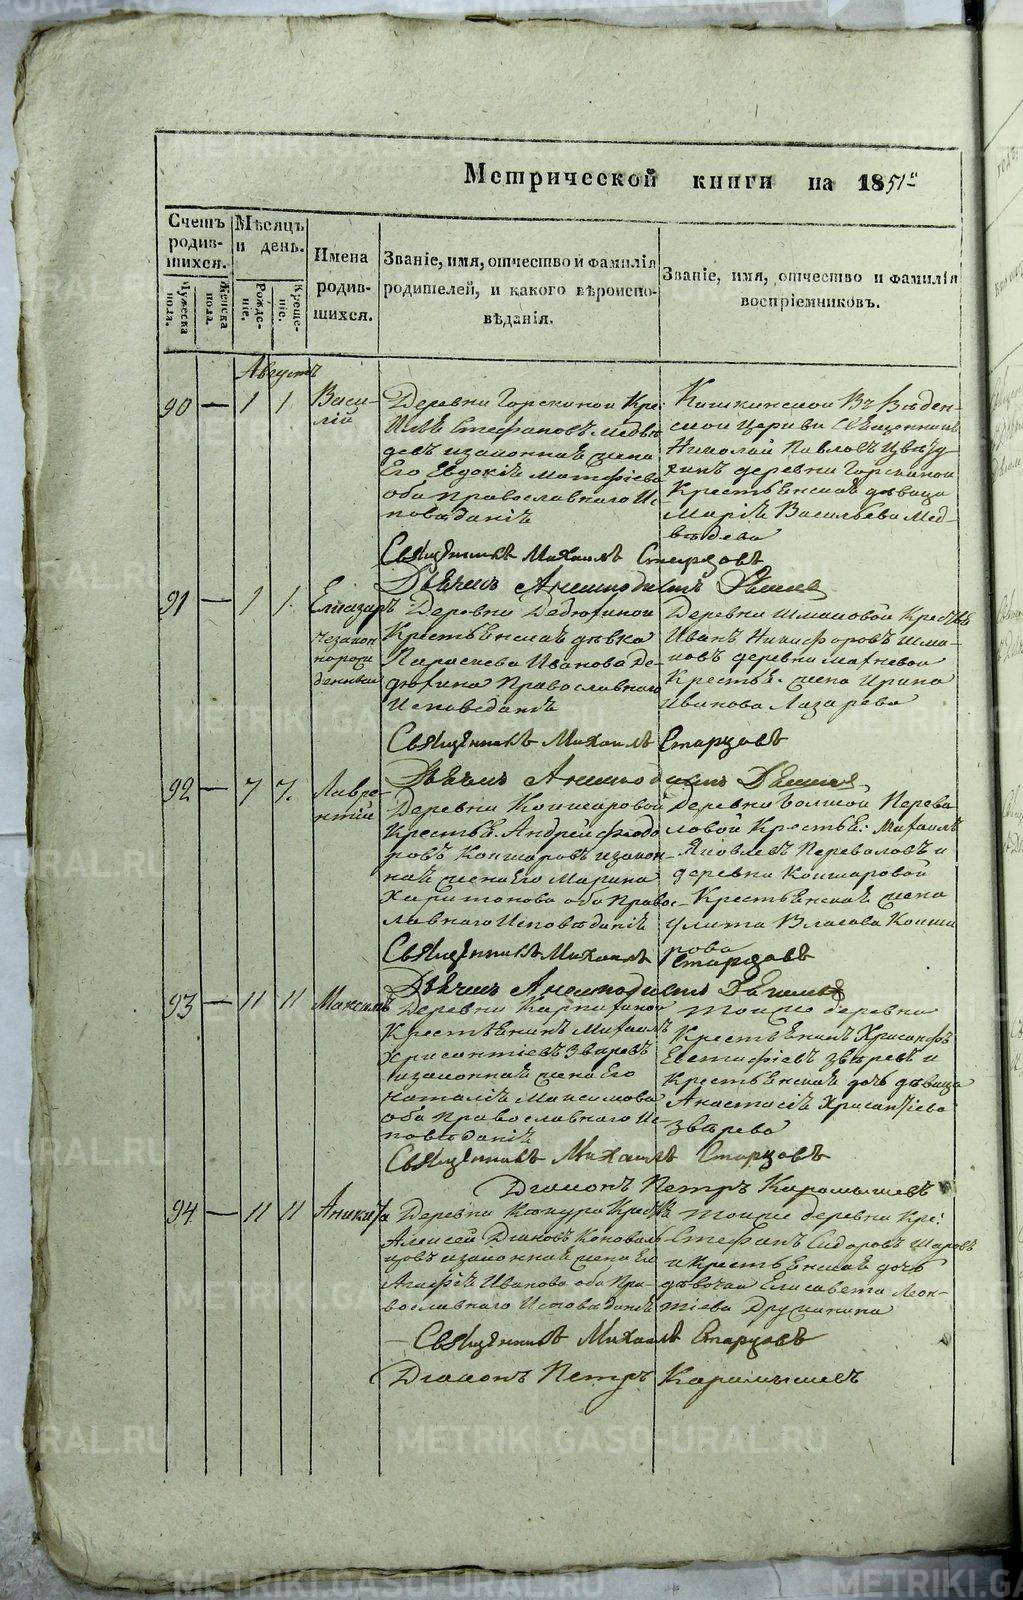 Метрической книги на 1851й
Счетъ родив-шихся.
Мѣсяцъ и день.
Имена родив-шихся.
Званіе, имя, отчество и фамилія
родителей, и какого вѣроиспо-
вѣданія.
Званіе, имя, отчество и фамилія
воспріемниковъ.
Мужеска пола.
Женска пола.
Рожде-ніе.
Креще-ніе.
Августъ
90 — 1 1 Васи-
лій
Деревни Горскиной Кре:
Стефановъ Медвѣ
девъ изаконная жена
Его Евдокія Матфіева
оба православнаго Ис
повѣданія
Кишкинской Введен-
ской Церкви Священникъ
Николай Павловъ
деревни Горскиной
Крестьенская дѣвица
Марія Васильева Мед-
вѣдева
Священникъ Михаилъ Старцовъ
Дьячекъ Анемподистъ
91 — 1 1. Елиазаръ
незакон
норож
денный
Деревни Дедюхиной
Крестьенская дѣвка
Параскева Иванова Де-
дюхина Православнаго
Исповеданія
Деревни Шмаковой
Иванъ Никифоровъ Шма-
ковъ деревни Махневой
Крестье. жена Ирина
Иванова Лазарева
Священникъ Михаилъ Старцовъ
Дьячекъ Анемподистъ
92 — 7 7. Лавре-
нтій
Деревни Кокшаровой
Крестье. Андрей Феодо
ровъ Кокшаровъ изакон-
ная жена Его Марина
Харитонова оба Правос-
лавнаго Исповѣданія
Деревни Перева
ловой Крестье: Михаилъ
Яковлевъ Переваловъ и
деревни Кокшаровой
Крестьенская жена
Улита Власова Кокша
рова
Священникъ Михаилъ Старцовъ
Дьячекъ Анемподистъ
93 — 11 11 Максимъ
Деревни Карпихиной
Крестьенинъ Михаилъ
Хрисантіевъ Зваревъ
изаконная жена Его
Наталія Максимова
оба Православнаго Ис-
повѣданія
Тойже деревни
Крестьенинъ Хрисанфъ
Евстафіевъ Звѣревъ и
Крестьенская дочь дѣвица
Анастасія Хрисантіева
Звѣрева
Священникъ Михаилъ Старцовъ
Діаконъ Петръ Карамышевъ
94 — 11 11 Аникита
Деревни Кокуря
Алексей Діаковъ Коноваль
цовъ изаконная жена Ег
Агафія Иванова оба Пра-
вославнаго Исповѣданія
Тойже деревни Кре:
Стефанъ Сидоровъ Шаровъ
и Крестьенская дочь
дѣвочка Елисавета Леон-
тіева Дружинина
Священникъ Михаилъ Старцовъ
Діаконъ Петръ Карамышевъ
METRIKI.GASO-URAL.RU